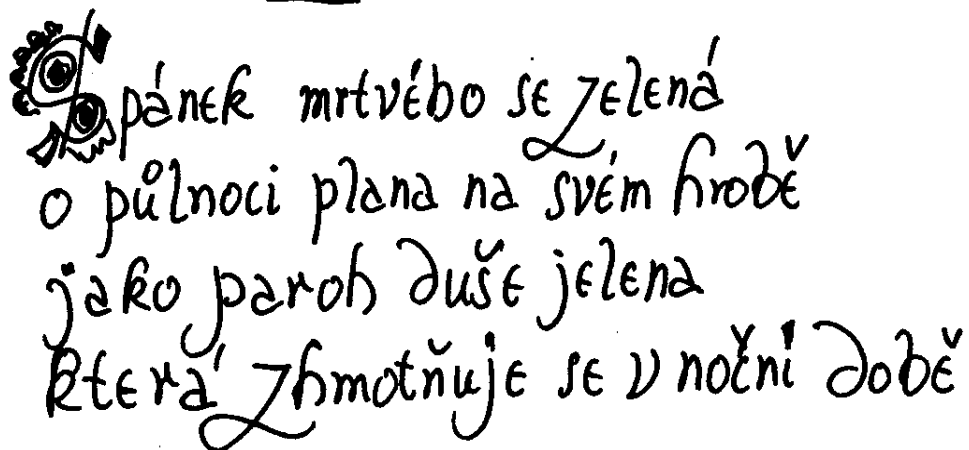 Spánek mrtvého se zelená
o půlnoci plana na svém hrobě
jako paroh duše jelena
která zhmotňuje se v noční době